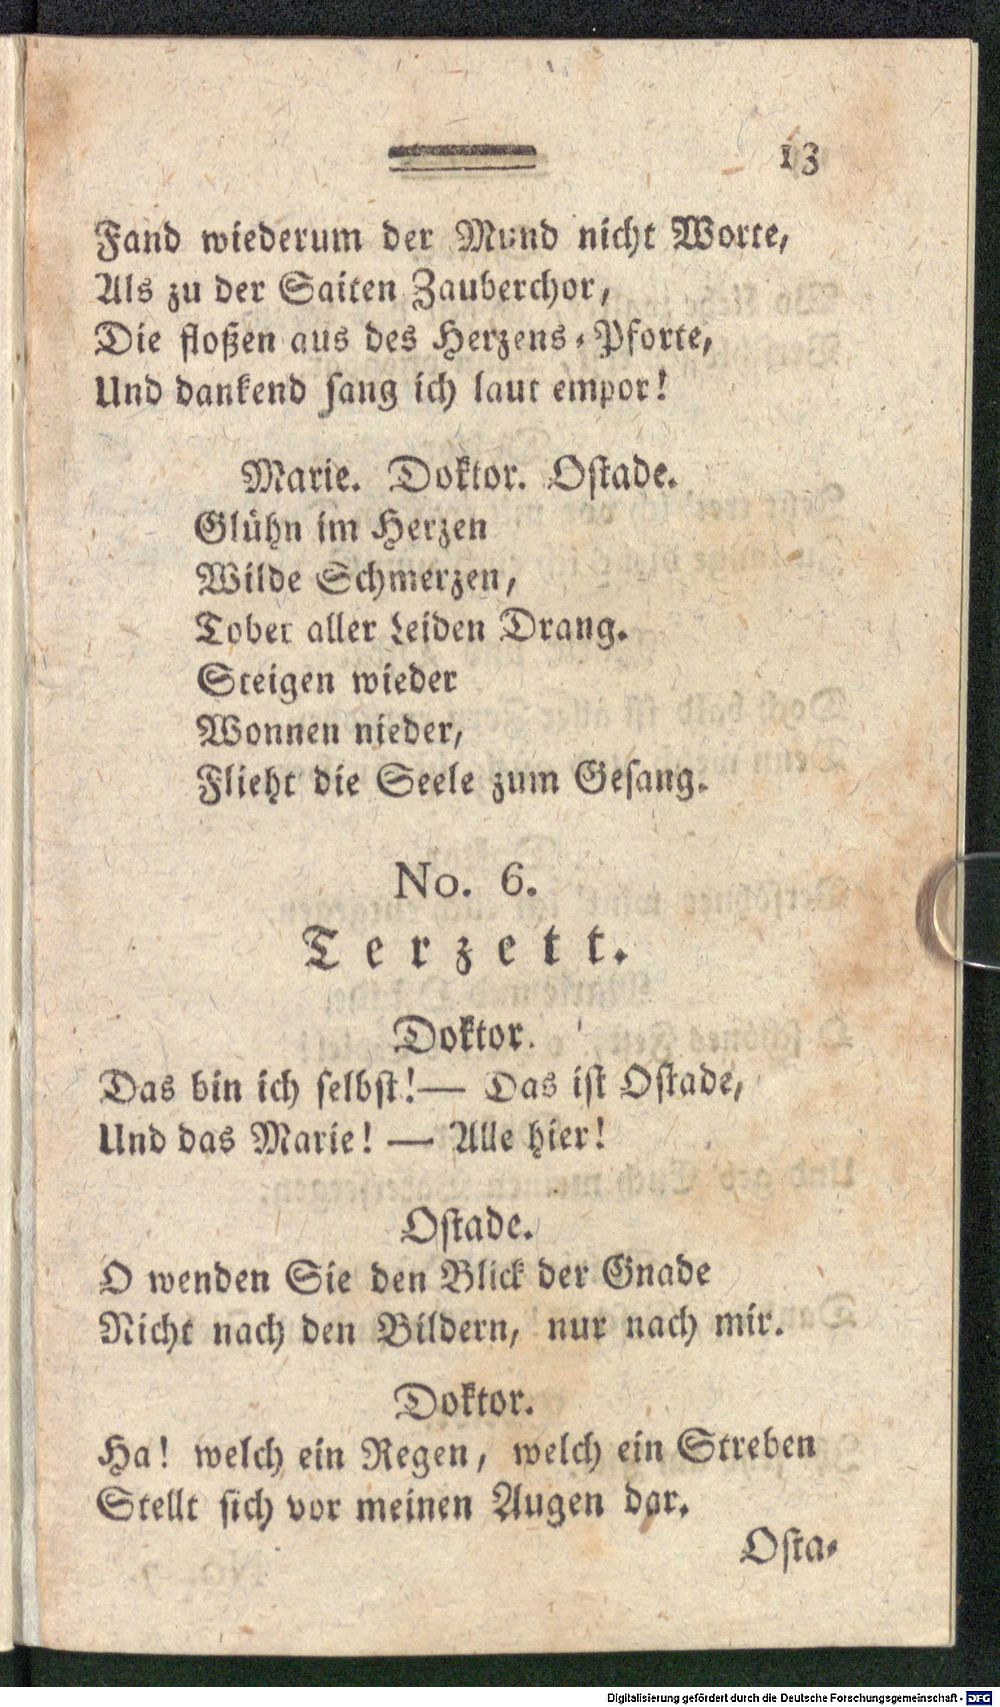 13
Fand wiederum der Mund nicht Worte,
Als zu der Saiten Zauberchor,
Die floßen aus des Herzens-Pforte,
Und dankend ſang ich laut empor!
Marie. Doktor. Oſtade.
Glühn im Herzen
Wilde Schmerzen,
Tobet aller Leiden Drang.
Steigen wieder
Wonnen nieder,
Flieht die Seele zum Geſang.
No. 6.
Terzett.
Doktor.
Das bin ich ſelbſt!— Das iſt Oſtade,
Und das Marie! — Alle hier!
Oſtade.
O wenden Sie den Blick der Gnade
Nicht nach den Bildern, nur nach mir.
Doktor.
Ha! welch ein Regen, welch ein Streben
Stellt ſich vor meinen Augen dar.
Oſta-
Digitalisierung gefördert durch die Deutsche Forschungsgemeinschaft - DFG